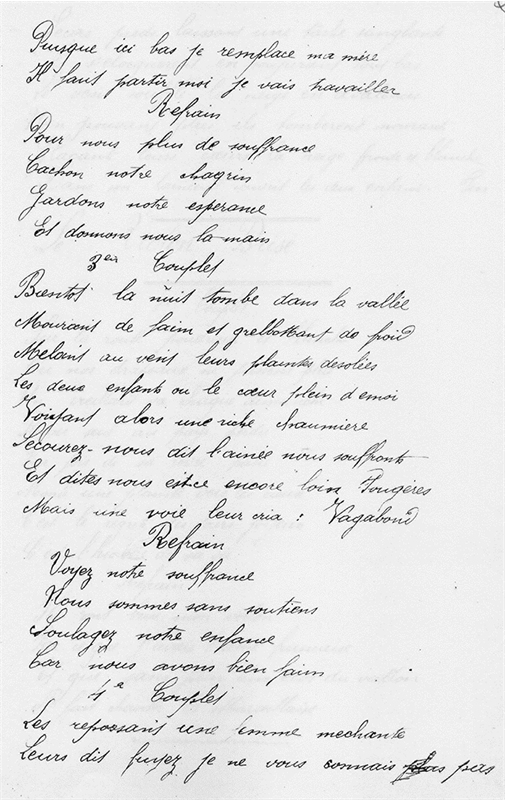 Puisque ici bas je remplace ma mère
Il faut partir moi je vais travailler
Refrain
Pour nous plus de souffrance
Cachon notre chagrin
Gardons notre esperance
Et donnons nous la main
3em Couplet
Bientot la nuit tombe dans la vallée
Mourant de faim et grellottant de froid
Melant au vent leurs plaintes desolées
Les deux enfants ou le cœur plein d emoi
Voisyant alors une riche chaumiere
Secourez-nous dit l'ainée nous souffrons
Et dites nous est ce encore loin Fougères
Mais une voie leur cria : Vagabond
Refrain
Voyez notre souffrance
Nous sommes sans soutiens
Soulagez notre enfance
Car nous avons bien faim
4e Couplet
Les repossant une femme mechante
Leurs dit fuyez je ne vous connais pas